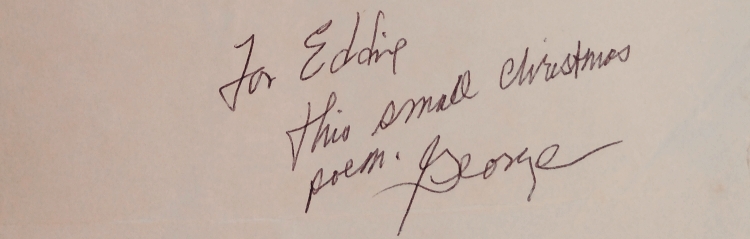 For Eddie
this small christmas
poem. George